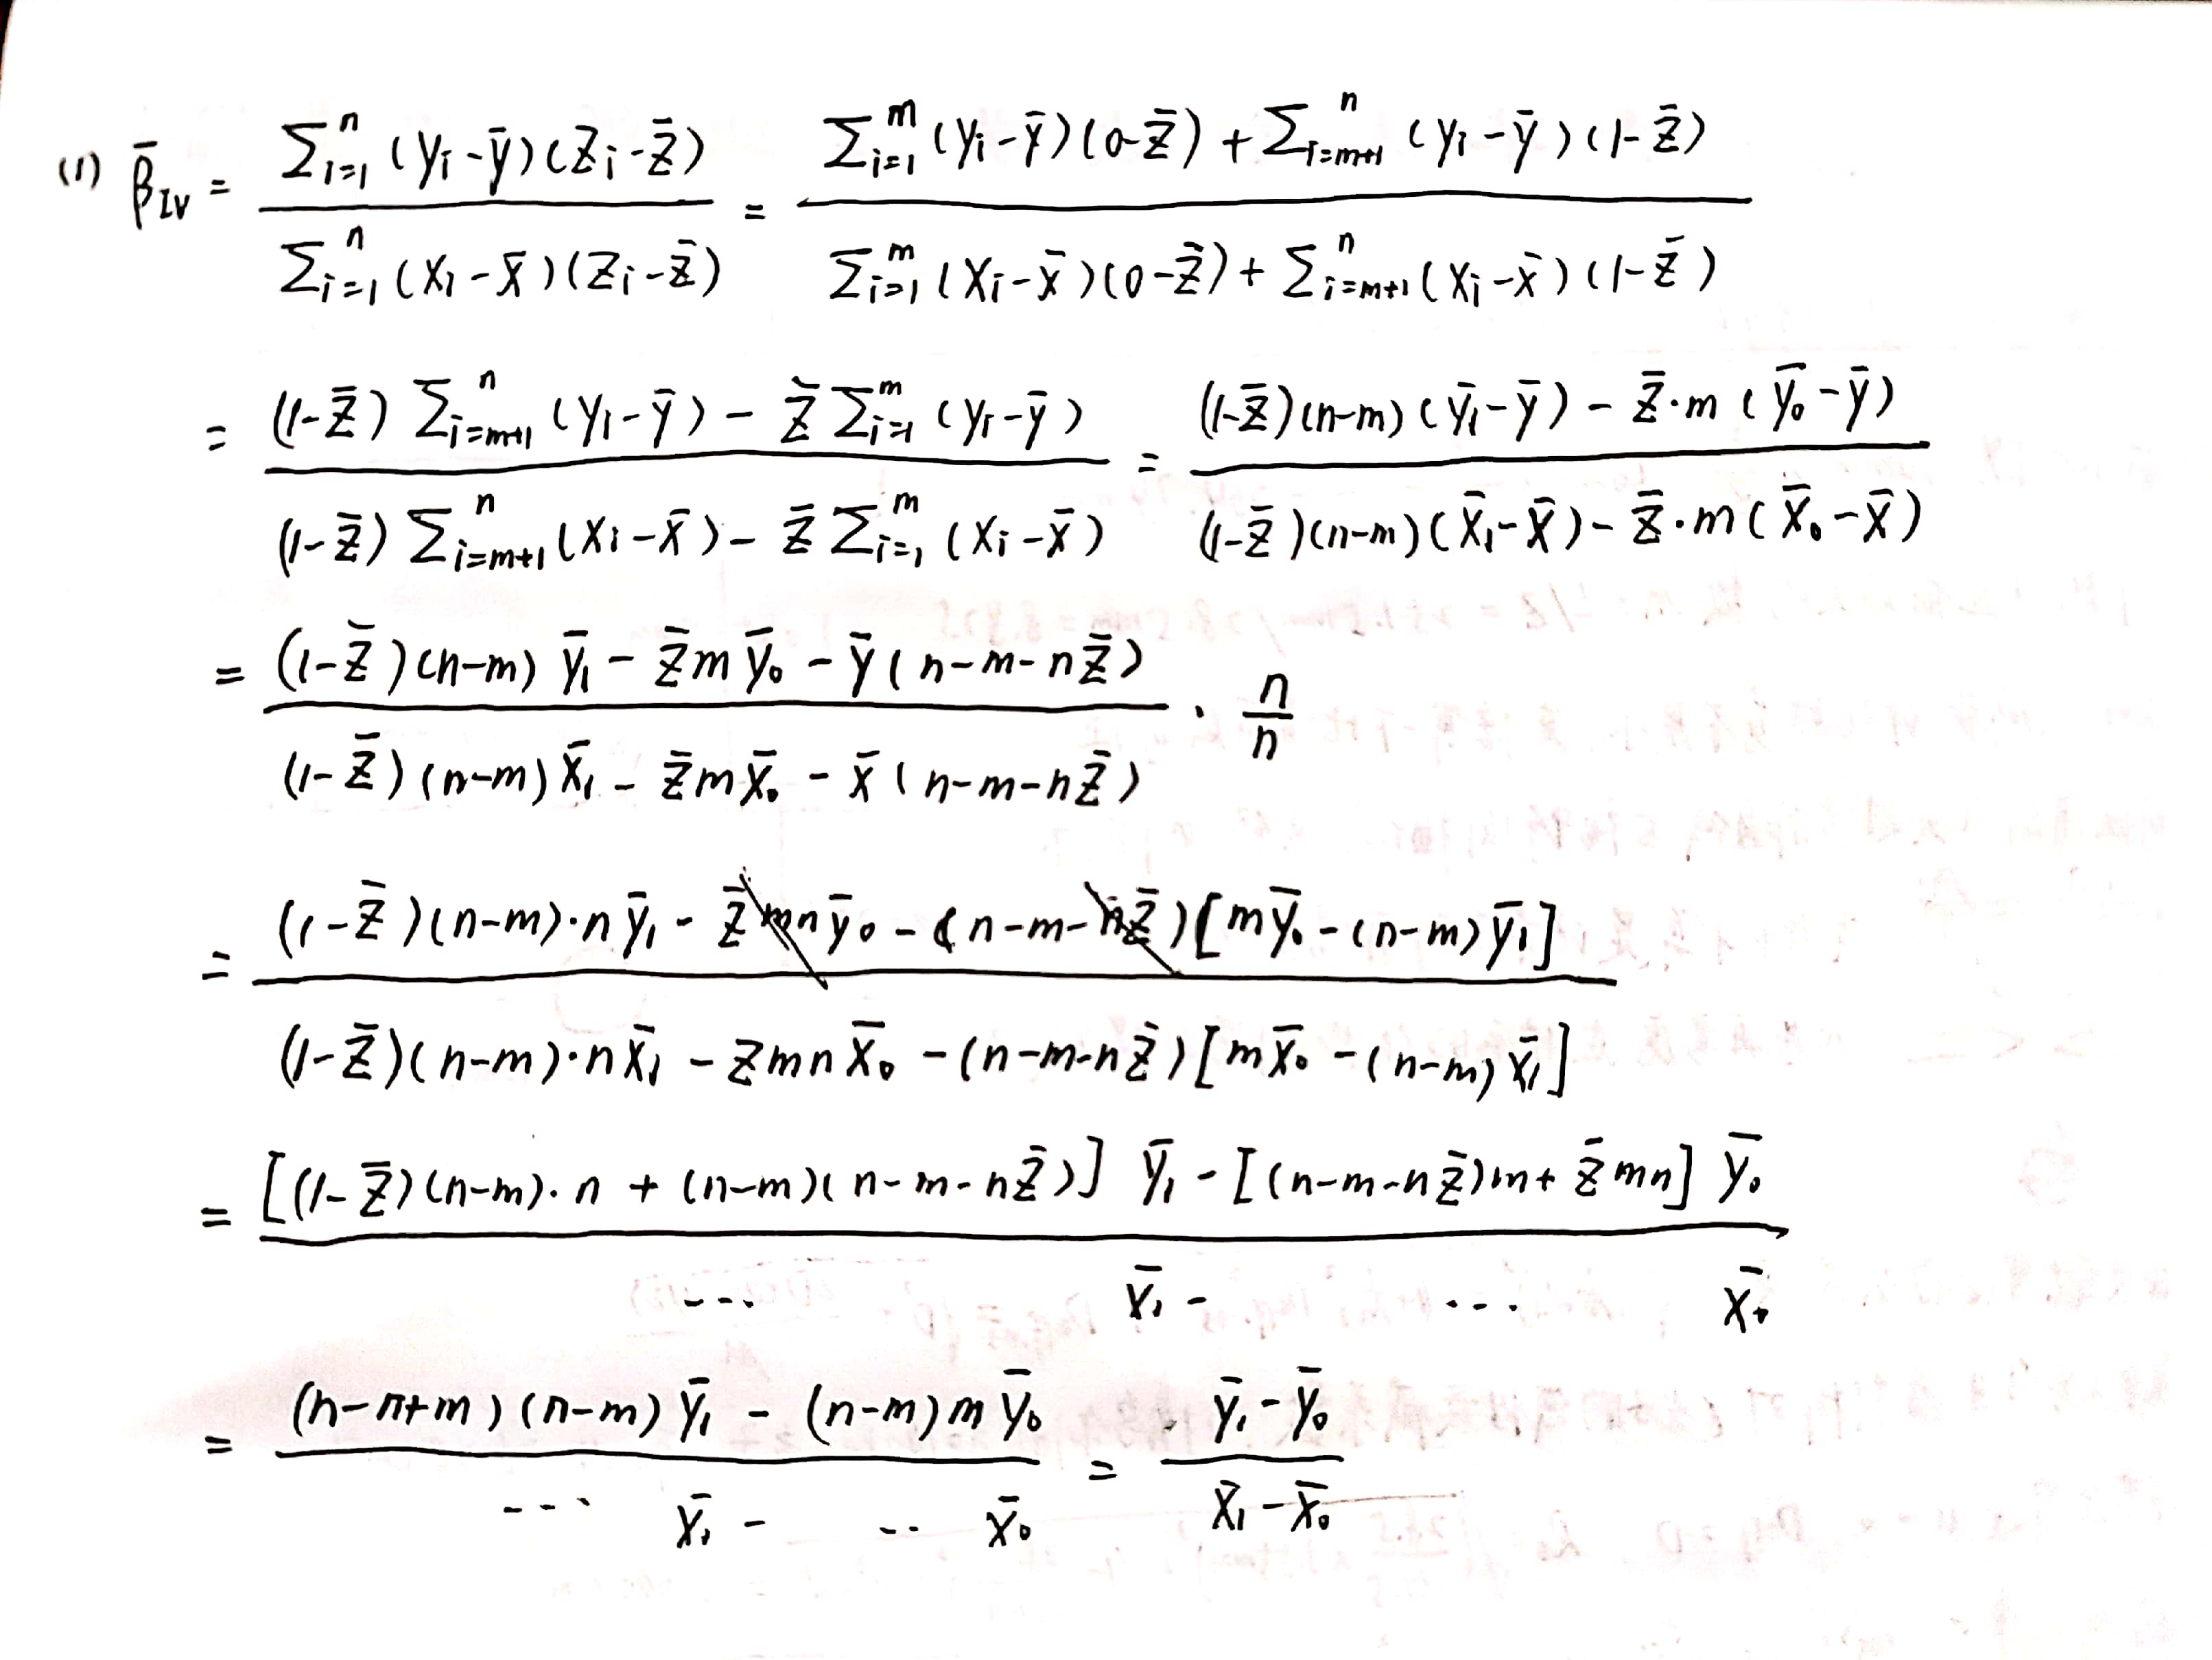 (1) β̄_IV = Σ_{i=1}^{n} (y_i - ȳ)(z_i - z̄) / Σ_{i=1}^{n} (x_i - x̄)(z_i - z̄) = [Σ_{i=1}^{m} (y_i - ȳ)(0 - z̄) + Σ_{i=m+1}^{n} (y_i - ȳ)(1 - z̄)] / [Σ_{i=1}^{m} (x_i - x̄)(0 - z̄) + Σ_{i=m+1}^{n} (x_i - x̄)(1 - z̄)]
= [(1 - z̄) Σ_{i=m+1}^{n} (y_i - ȳ) - z̄ Σ_{i=1}^{m} (y_i - ȳ)] / [(1 - z̄) Σ_{i=m+1}^{n} (x_i - x̄) - z̄ Σ_{i=1}^{m} (x_i - x̄)] = [(1 - z̄)(n-m)(ȳ_1 - ȳ) - z̄·m(ȳ_0 - ȳ)] / [(1 - z̄)(n-m)(x̄_1 - x̄) - z̄·m(x̄_0 - x̄)]
= [(1 - z̄)(n-m) ȳ_1 - z̄mȳ_0 - ȳ(n-m-nz̄)] / [(1 - z̄)(n-m)x̄_1 - z̄mx̄_0 - x̄(n-m-nz̄)] · n/n
= [(1 - z̄)(n-m)·nȳ_1 - z̄mnȳ_0 - (n-m-nz̄)[mȳ_0 - (n-m)ȳ_1]] / [(1 - z̄)(n-m)·nx̄_1 - zmnx̄_0 - (n-m-nz̄)[mx̄_0 - (n-m)x̄_1]]
= [[(1 - z̄)(n-m)·n + (n-m)(n-m-nz̄)] ȳ_1 - [(n-m-nz̄)m + z̄mn] ȳ_0] / [... x̄_1 - ... x̄_0]
= [(n-n+m)(n-m)ȳ_1 - (n-m)mȳ_0] / [--- x̄_1 - .. x̄_0] = (ȳ_1 - ȳ_0) / (x̄_1 - x̄_0)